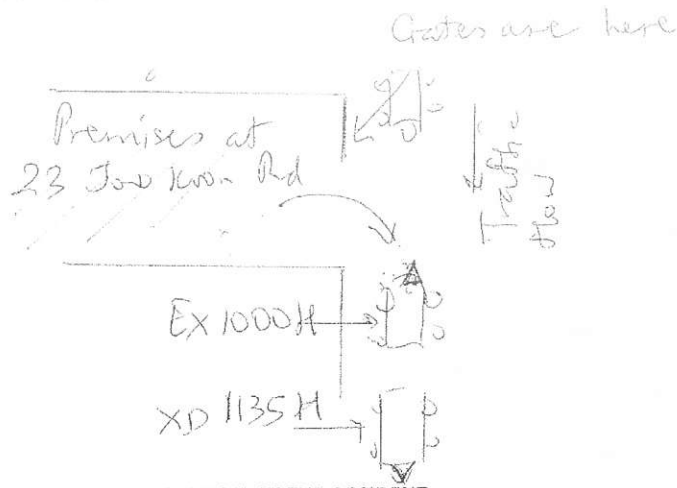 Gates are here
Premises at
23 Joo Koon Rd
Traffic
flow
EX 1000H
XD 1135H